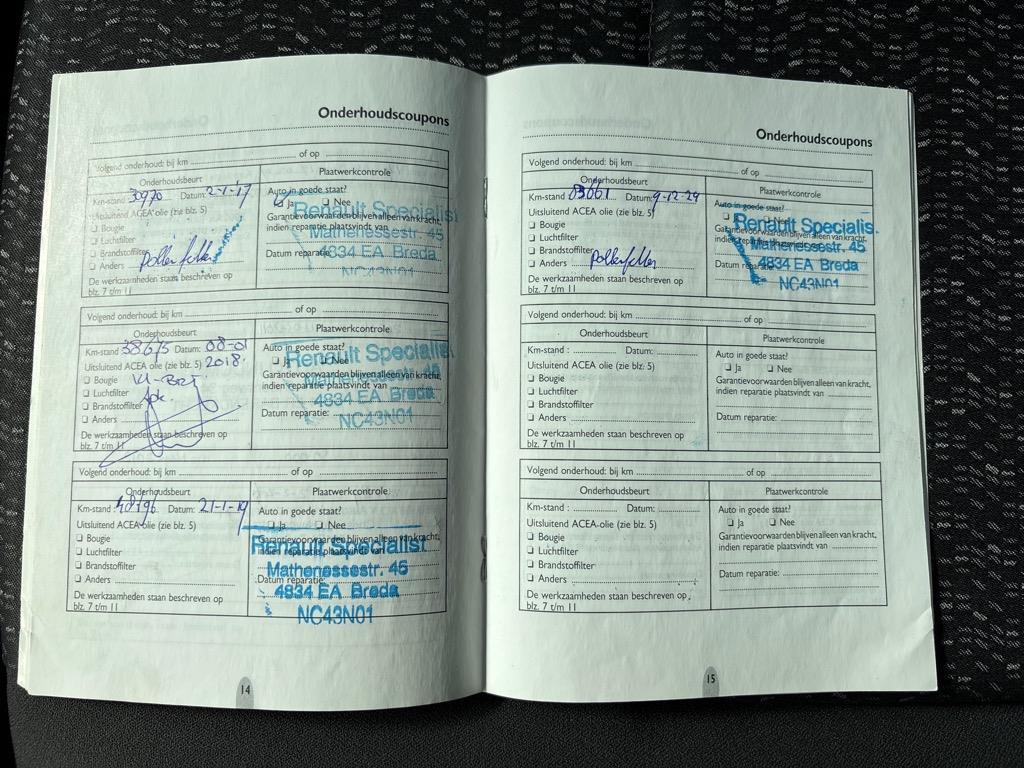 Onderhoudscoupons
Volgend onderhoud: bij km of op
Onderhoudsbeurt Plaatwerkcontrole
Km-stand 30970 Datum: 2-1-'17 Auto in goede staat?
Uitsluitend ACEA olie (zie blz. 5) Ja Nee
Bougie Garantievoorwaarden blijven alleen van kracht,
Luchtfilter indien reparatie plaatsvindt van
Brandstoffilter Datum reparatie:
Anders pollenfilter
De werkzaamheden staan beschreven op
blz. 7 t/m 11
Renault Specialist
Mathenessestr. 45
4834 EA Breda
NC43N01
Volgend onderhoud: bij km of op
Onderhoudsbeurt Plaatwerkcontrole
Km-stand 38675 Datum: 08-01 Auto in goede staat?
Uitsluitend ACEA olie (zie blz. 5) 2018 Ja Nee
Bougie Garantievoorwaarden blijven alleen van kracht,
Luchtfilter indien reparatie plaatsvindt van
Brandstoffilter
Anders Datum reparatie:
De werkzaamheden staan beschreven op
blz. 7 t/m 11
Renault Specialist
Mathenessestr. 45
4834 EA Breda
NC43N01
Volgend onderhoud: bij km of op
Onderhoudsbeurt Plaatwerkcontrole
Km-stand : 48196 Datum: 21-1-19 Auto in goede staat?
Uitsluitend ACEA-olie (zie blz. 5) Ja Nee
Bougie Garantievoorwaarden blijven alleen van kracht,
Luchtfilter indien reparatie plaatsvindt van
Brandstoffilter
Anders Datum reparatie:
De werkzaamheden staan beschreven op
blz. 7 t/m 11
Renault Specialist
Mathenessestr. 45
4834 EA Breda
NC43N01
14
Onderhoudscoupons
Volgend onderhoud: bij km of op
Onderhoudsbeurt Plaatwerkcontrole
Km-stand : Datum: 9-12-24 Auto in goede staat?
Uitsluitend ACEA olie (zie blz. 5) Ja Nee
Bougie Garantievoorwaarden blijven alleen van kracht,
Luchtfilter
Brandstoffilter
Anders pollenfilter Datum reparatie:
De werkzaamheden staan beschreven op
blz. 7 t/m 11
Renault Specialis
Mathenessestr. 45
4834 EA Breda
NC43N01
Volgend onderhoud: bij km of op
Onderhoudsbeurt Plaatwerkcontrole
Km-stand : Datum: Auto in goede staat?
Uitsluitend ACEA olie (zie blz. 5) Ja Nee
Bougie Garantievoorwaarden blijven alleen van kracht,
Luchtfilter indien reparatie plaatsvindt van
Brandstoffilter
Anders Datum reparatie:
De werkzaamheden staan beschreven op
blz. 7 t/m 11
Volgend onderhoud: bij km of op
Onderhoudsbeurt Plaatwerkcontrole
Km-stand : Datum: Auto in goede staat?
Uitsluitend ACEA-olie (zie blz. 5) Ja Nee
Bougie Garantievoorwaarden blijven alleen van kracht,
Luchtfilter indien reparatie plaatsvindt van
Brandstoffilter
Anders Datum reparatie:
De werkzaamheden staan beschreven op
blz. 7 t/m 11
15